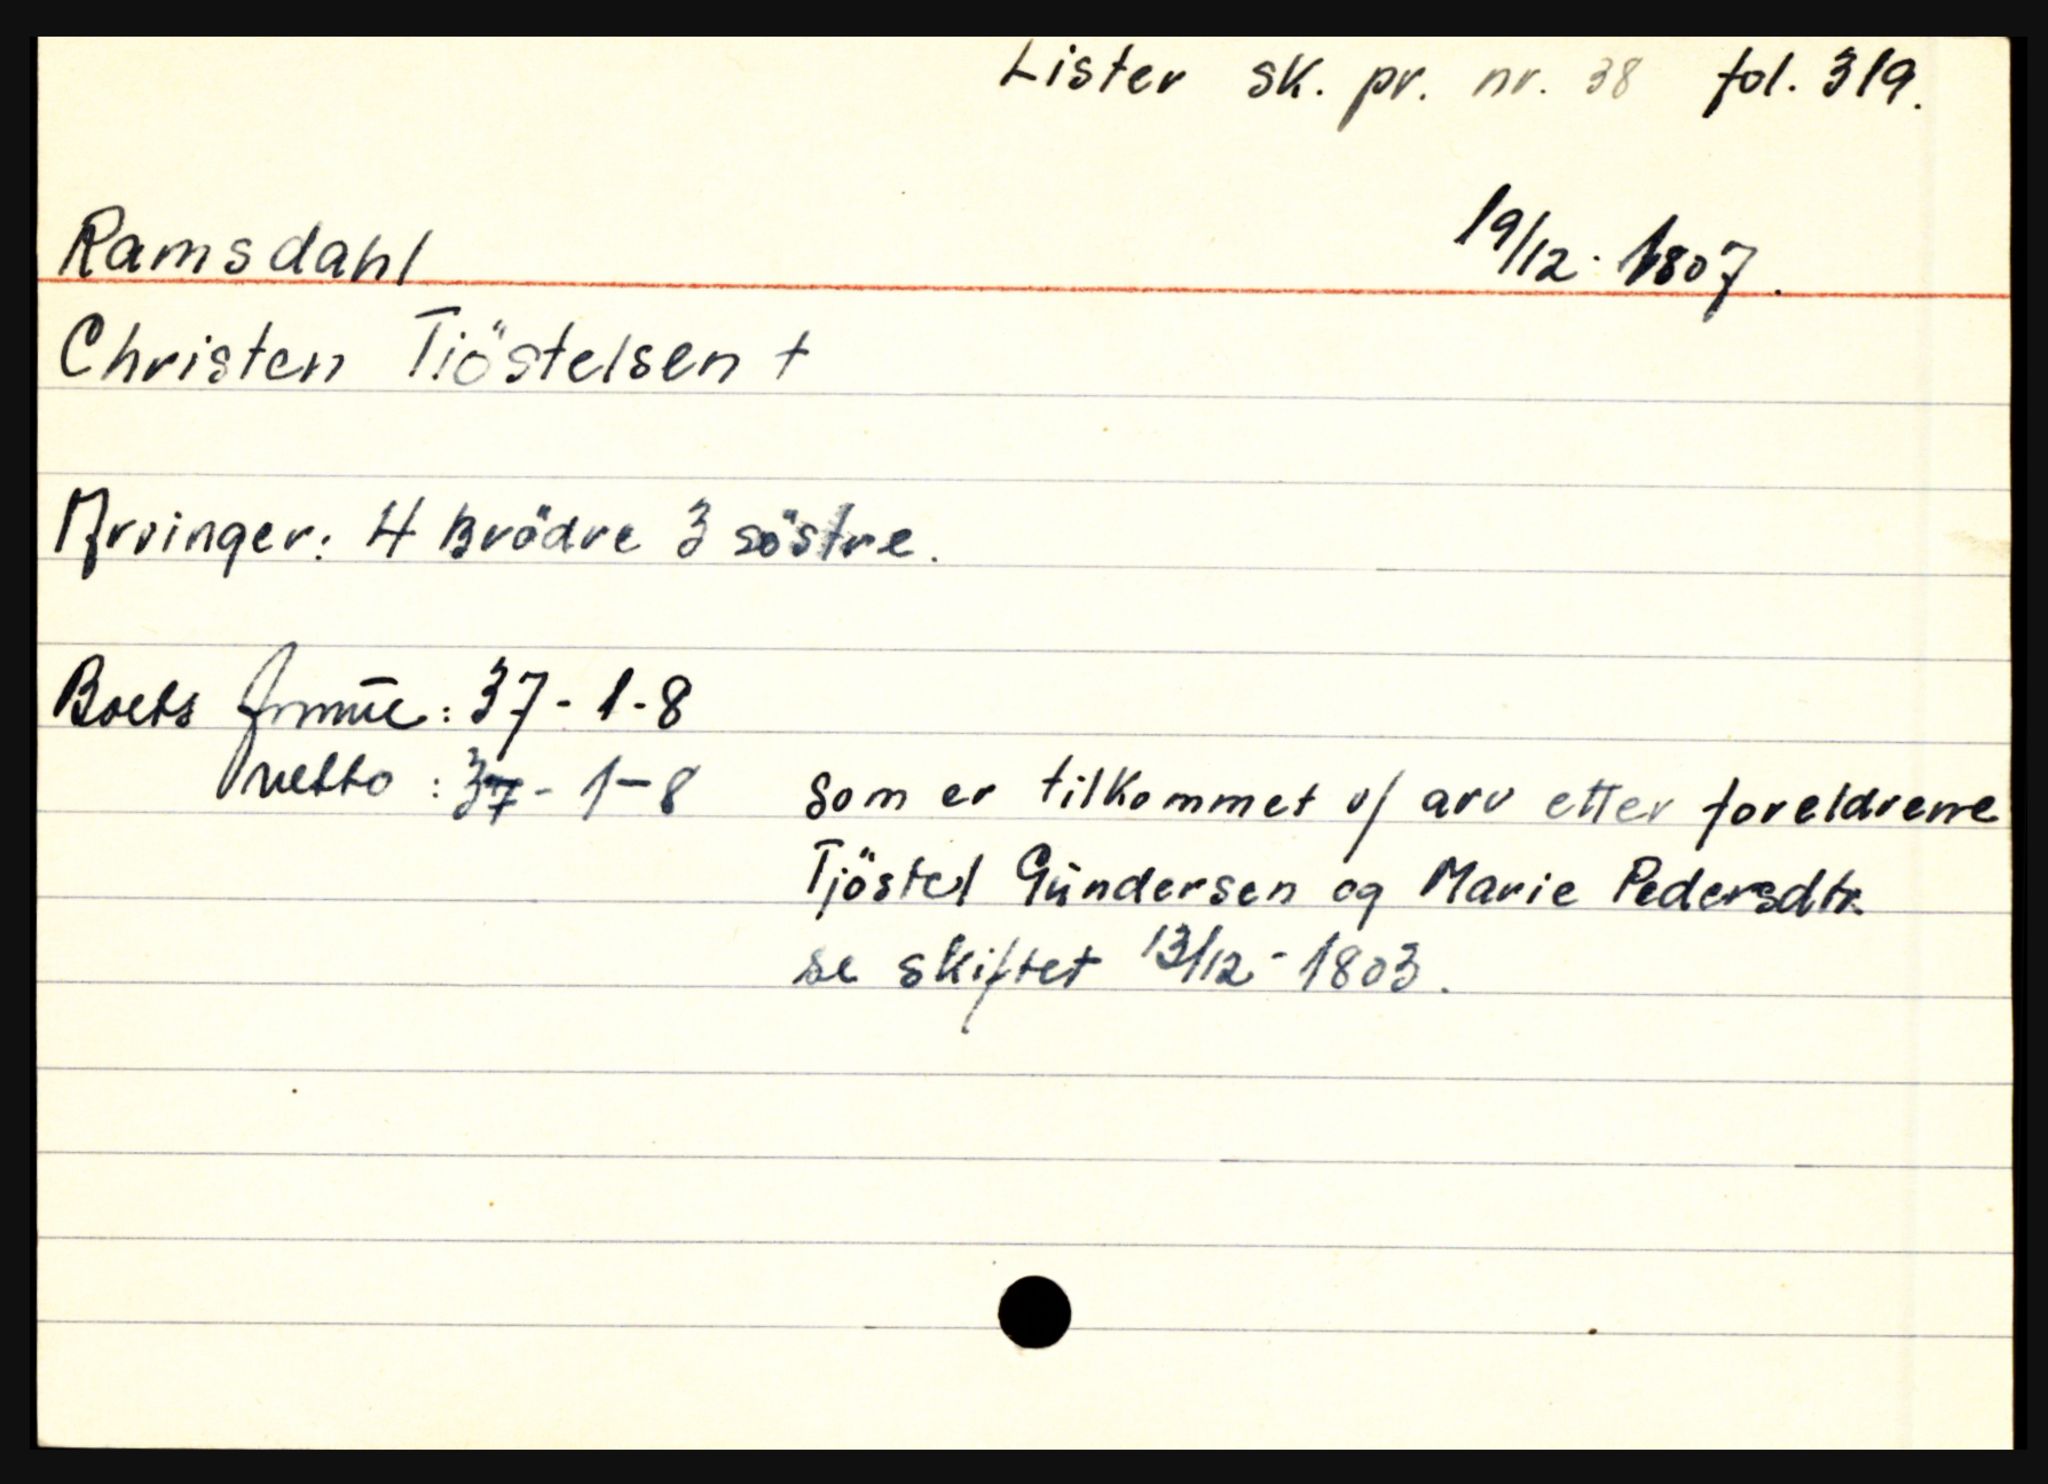 Lister sk. pr. nr. 38 fol. 319.
Ramsdahl 19/12 · 1807.
Christen Tiöstelsen +
Arvinger: 4 Brödre 3 söstre.
Boets frmūe : 37 - 1 - 8
netto : 37 - 1 - 8 som er tilkommet v/ arv etter foreldrene
Tjöstel Gundersen og Marie Pedersdtr.
se skiftet 13/12 - 1803.